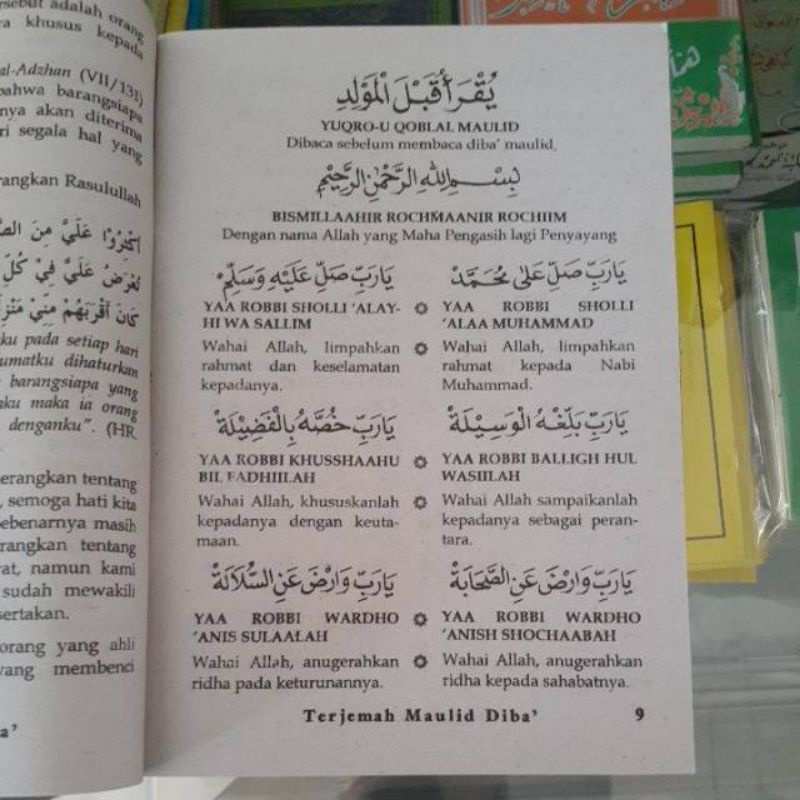 sebut adalah orang
khusus kepada
al-Adzhan (VII/131)
bahwa barangsiapa
nya akan diterima
ri segala hal yang
rangkan Rasulullah
اَكْثِرُوْا عَلَيَّ مِنَ الصَّ
تُعْرَضُ عَلَيَّ فِيْ كُلِّ
كَانَ اَقْرَبَهُمْ مِنِّيْ مَنْزِ
ku pada setiap hari
umatku dihaturkan
barangsiapa yang
ku maka ia orang
denganku". (HR.
erangkan tentang
, semoga hati kita
ebenarnya masih
rangkan tentang
rat, namun kami
sudah mewakili
sertakan.
orang yang ahli
yang membenci
a'
يُقْرَأُ قَبْلَ الْمَوْلِدِ
YUQRO-U QOBLAL MAULID
Dibaca sebelum membaca diba' maulid.
بِسْمِ اللهِ الرَّحْمٰنِ الرَّحِيْمِ
BISMILLAAHIR ROCHMAANIR ROCHIIM
Dengan nama Allah yang Maha Pengasih lagi Penyayang
يَارَبِّ صَلِّ عَلٰى مُحَمَّدْ
YAA ROBBI SHOLLI
'ALAA MUHAMMAD
Wahai Allah, limpahkan
rahmat kepada Nabi
Muhammad.
يَارَبِّ صَلِّ عَلَيْهِ وَسَلِّمْ
YAA ROBBI SHOLLI 'ALAY-
HI WA SALLIM
Wahai Allah, limpahkan
rahmat dan keselamatan
kepadanya.
يَارَبِّ بَلِّغْهُ الْوَسِيْلَةْ
YAA ROBBI BALLIGH HUL
WASIILAH
Wahai Allah sampaikanlah
kepadanya sebagai peran-
tara.
يَارَبِّ خُصَّهُ بِالْفَضِيْلَةْ
YAA ROBBI KHUSSHAAHU
BIL FADHIILAH
Wahai Allah, khususkanlah
kepadanya dengan keuta-
maan.
يَارَبِّ وَارْضَ عَنِ الصَّحَابَةْ
YAA ROBBI WARDHO
'ANISH SHOCHAABAH
Wahai Allah, anugerahkan
ridha kepada sahabatnya.
يَارَبِّ وَارْضَ عَنِ السُّلَالَةْ
YAA ROBBI WARDHO
'ANIS SULAALAH
Wahai Allah, anugerahkan
ridha pada keturunannya.
Terjemah Maulid Diba' 9